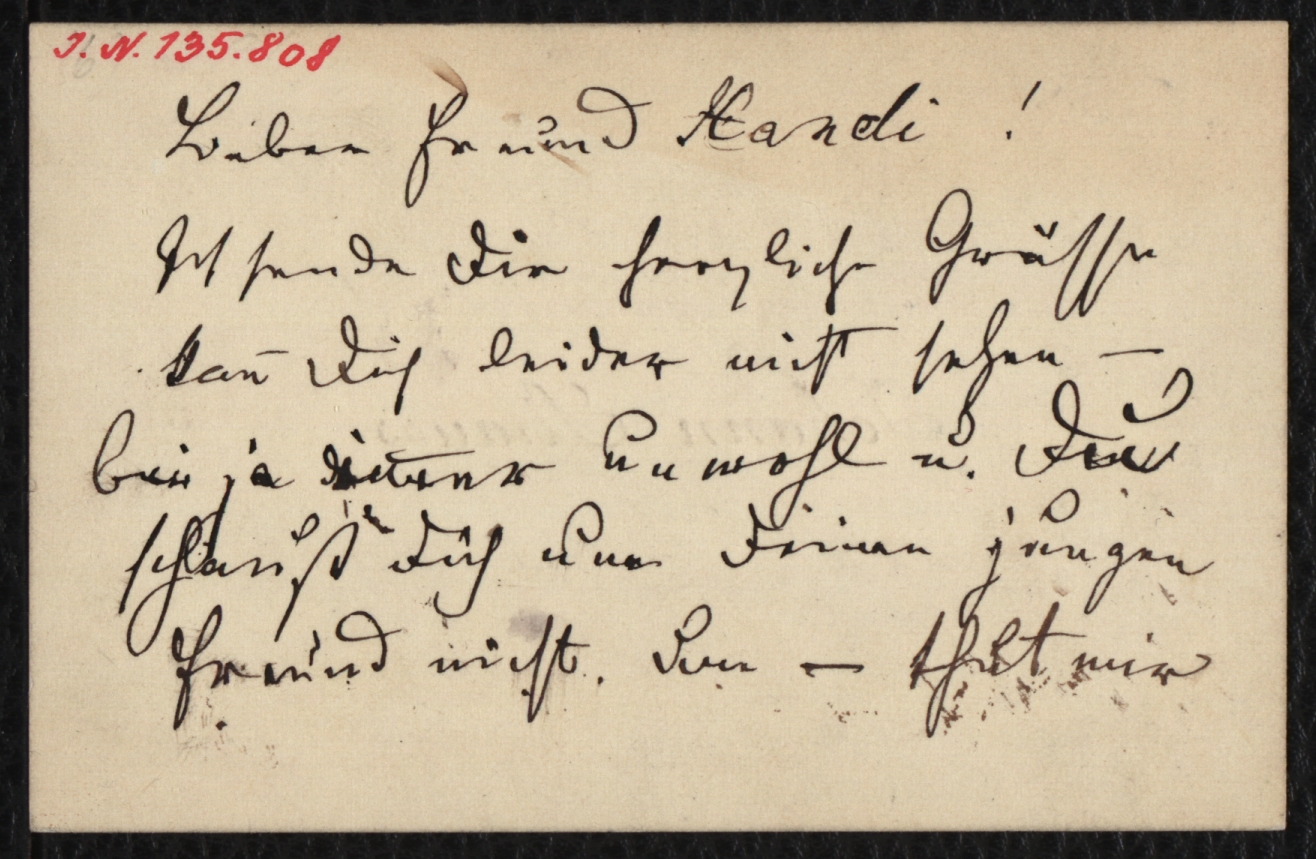 I. N. 135.808
Lieber Freund Kandi !
Ich sende Dir herzliche Grüsse
kan̄ Dich leider nicht sehen —
bin ja im̄er unwohl u. Du
schauſt Dich um Deinen jungen
Freund nicht. — thut mir